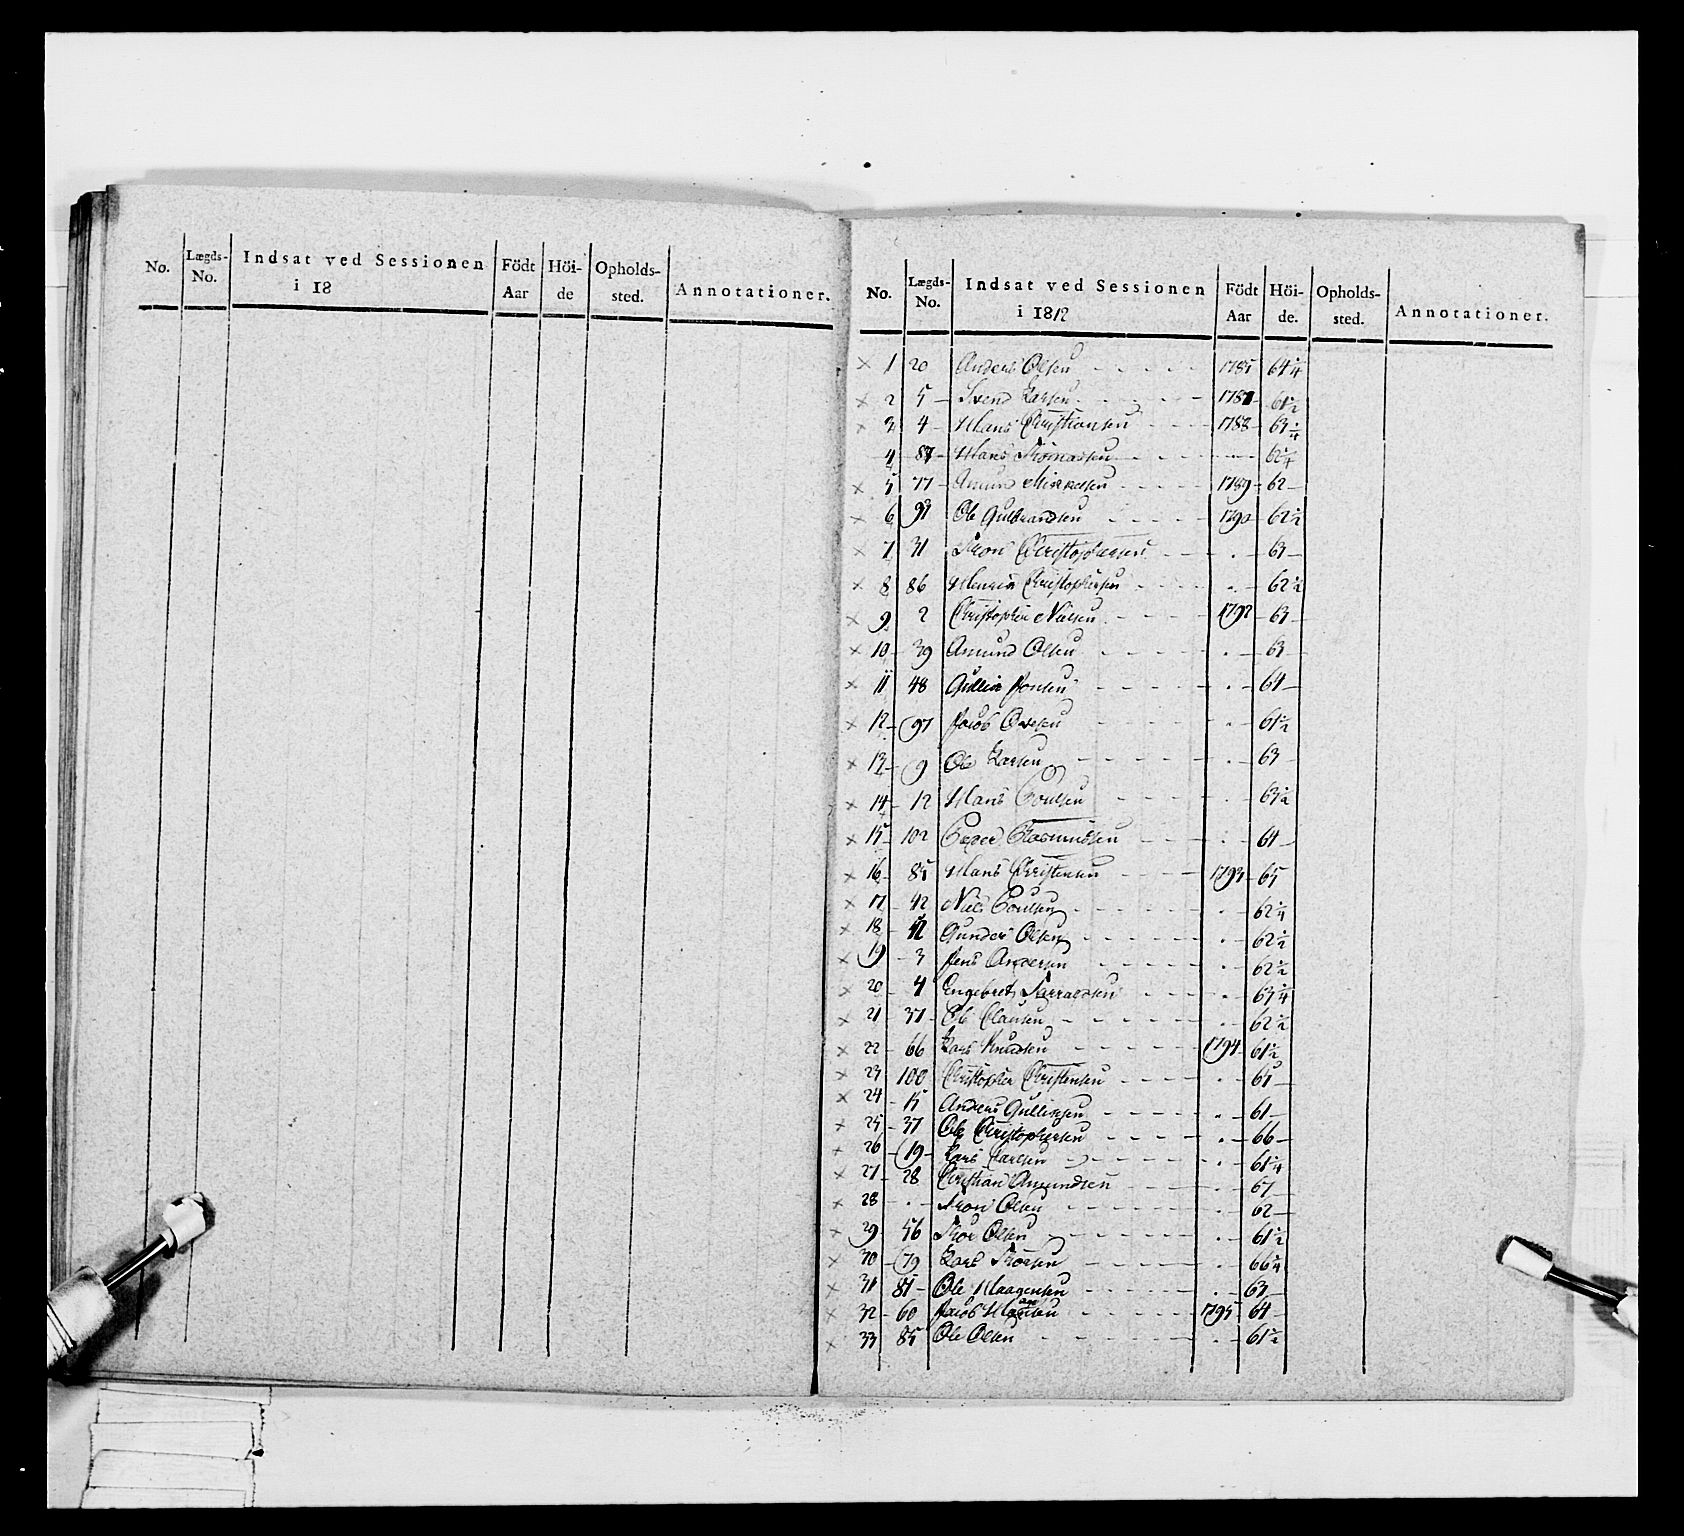 No. Lægds-No. Indsat ved Sessionen i 18 Födt Aar Höi-de Opholds-sted. Annotationer.
No. Lægds-No. Indsat ved Sessionen i 1812 Födt Aar Höi-de. Opholds-sted. Annotationer.
× 1 20 Anders Olsen - - - - - 1785 64 1/4
× 2 5 - Svend Larsen - - - - 178 - 61 1/2
× 3 4 - Hans Christiansen - - - 1788 - 63 1/4
4 87 - Hans Thomassen - - - - - 62 1/4
× 5 77 - Amund - - - - 1789 - 62 -
× 6 91 Ole Gulbrandsen - - - - 1790 - 62 1/2
× 7 31 Tron Christophersen - - . - 63 -
× 8 86 Henrik Christophersen - - - . - 62 1/2
× 9 2 Christopher Nielsen - - - - 1792 - 63 -
× 10 - 39 Amund Olsen - - - - . - 63 -
× 11 48 Gullik Jonsen - - - - . - 64 -
× 12 - 97 Jacob - - - - . - 61 1/2
× 13 - 9 Ole Larsen - - - - - . - 63 -
× 14 - 12 Hans Poulsen - - - - . - 63 1/2
× 15 - 102 Peder Rasmussen - - - . - 64 -
× 16 - 85 Hans Christensen - - - 1793 - 65
× 17 - 42 Niels Poulsen - - - - - . - 62 1/4
× 18 - Gunder Olsen - - - - - . - 62 1/2
× 19 - 3 Jens Andersen - - - - . - 62 1/2
× 20 - 4 Engebret - - - . - 63 1/4
× 21 - 37 - Ole Clausen - - - - - . - 62 1/2
× 22 - 66 Lars Knudsen - - - - - 1794 - 61 1/2
× 23 - 100 Christopher Christensen - - - . - 65 -
× 24 - 15 Anders Gulliksen - - - - . - 61 -
× 25 - 37 Ole Christophersen - - - - . - 66 -
× 26 - 19 - Lars Carlsen - - - - - . - 61 1/4
× 27 - 28 Christian Amundsen - - - . - 67 -
× 28 - . - Tron Olsen - - - - - . - 62 -
× 29 56 Thor Olsen - - - - - . - 61 1/2
× 30 - 79 Lars Thorsen - - - - - . - 66 1/4
× 31 - 85 - Ole Haagensen - - - - . - 63 -
× 32 - 60 Jacob Hansen - - - - 1795 - 64 -
× 33 85 Ole Olsen - - - - - . - 61 1/2